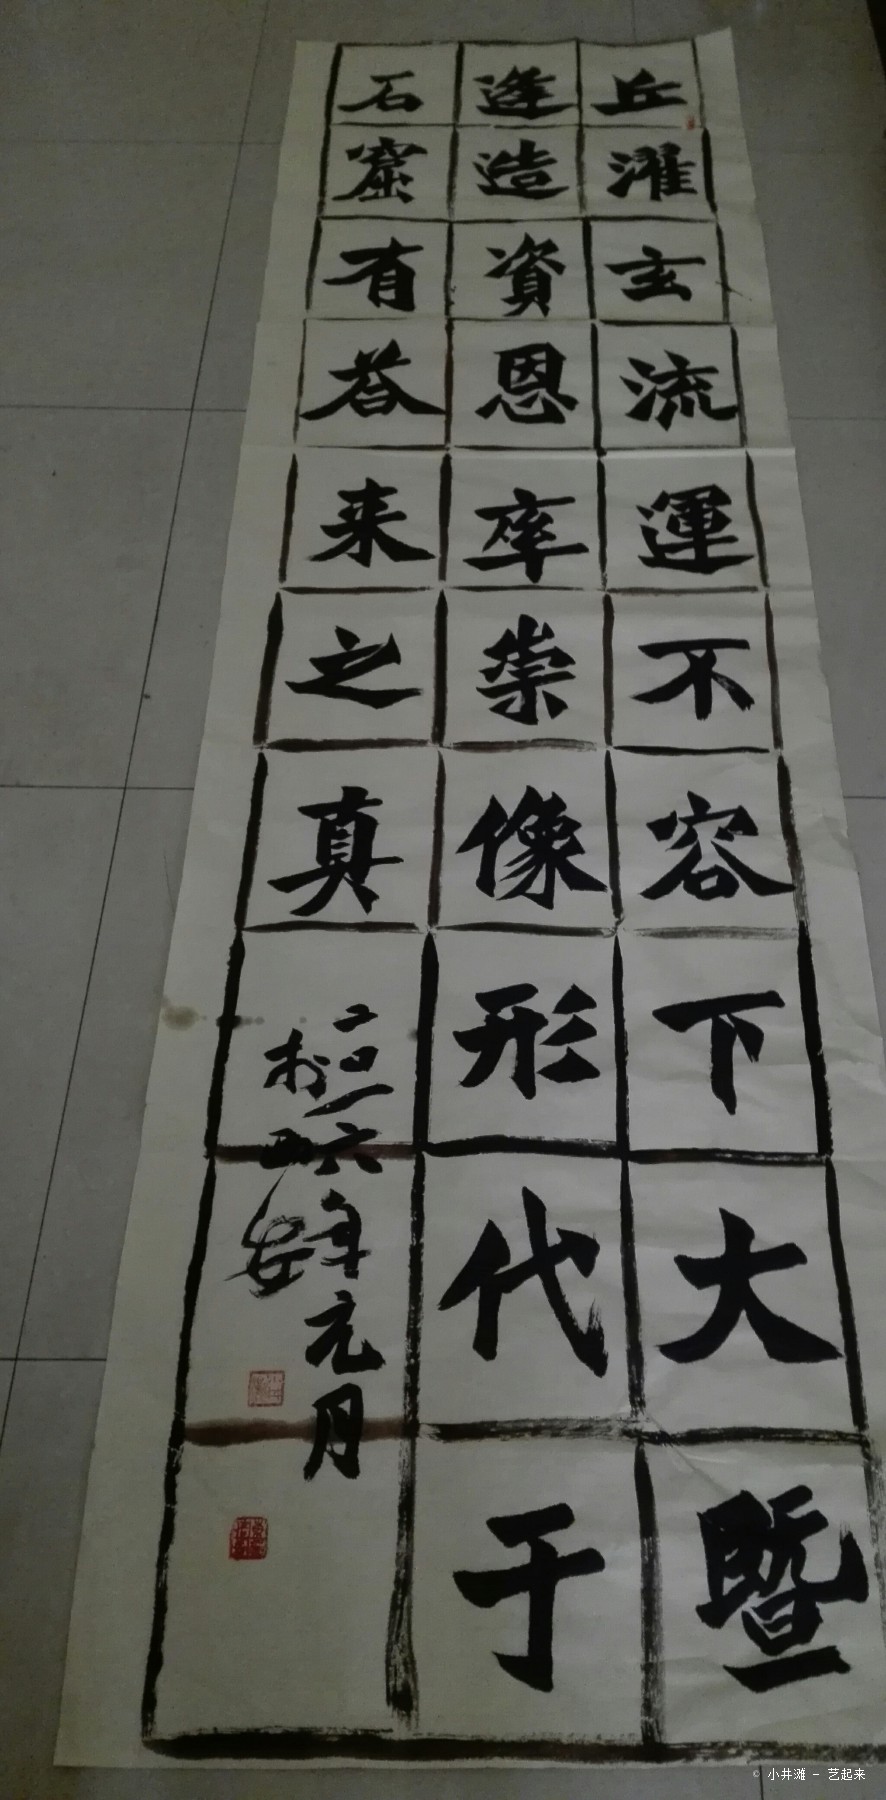 丘濯玄流運不容下大暨
逢造資恩率崇像形代于
石窟有荅来之真
二〇一六年元月
於西安
© 小井滩 - 艺起来